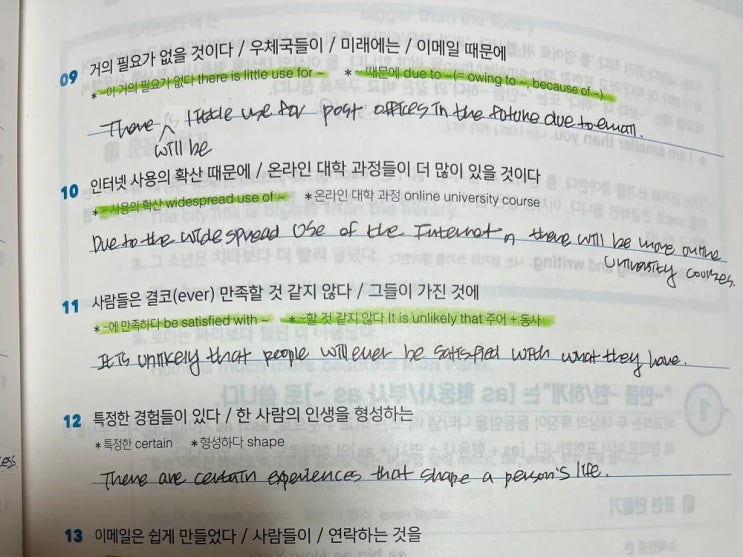 09 거의 필요가 없을 것이다 / 우체국들이 / 미래에는 / 이메일 때문에
* ~이 거의 필요가 없다 there is little use for ~ * ~ 때문에 due to ~(= owing to ~, because of ~)
There ^ little use for post offices in the future due to email.
will be
10 인터넷 사용의 확산 때문에 / 온라인 대학 과정들이 더 많이 있을 것이다
* ~ 사용의 확산 widespread use of ~ * 온라인 대학 과정 online university course
Due to the widespread use of the Internet, there will be more online
university courses.
11 사람들은 결코(ever) 만족할 것 같지 않다 / 그들이 가진 것에
* ~에 만족하다 be satisfied with ~ * ~할 것 같지 않다 It is unlikely that 주어 + 동사
It is unlikely that people will ever be satisfied with what they have.
12 특정한 경험들이 있다 / 한 사람의 인생을 형성하는
* 특정한 certain * 형성하다 shape
There are certain experiences that shape a person's life.
13 이메일은 쉽게 만들었다 / 사람들이 / 연락하는 것을